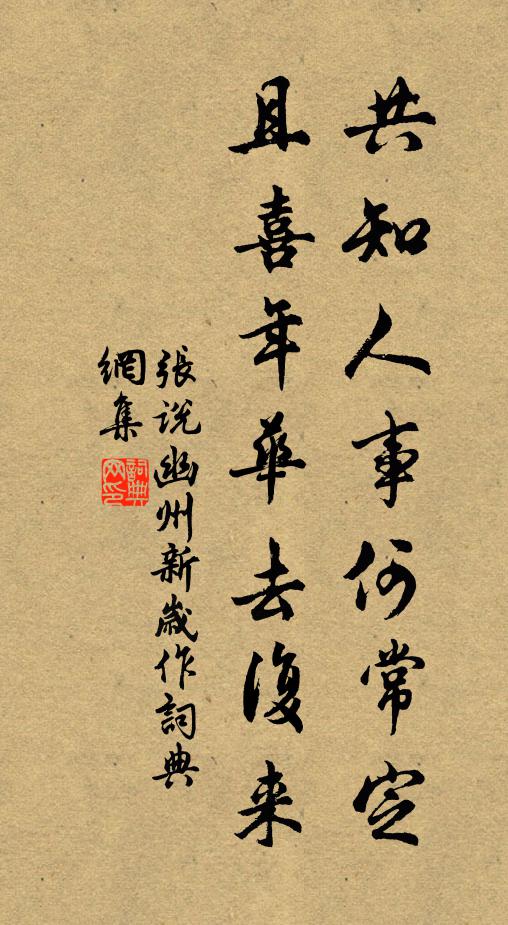 共知人事何常定
且喜年華去復来
張說幽州新歲作詞典
網集
詞典
网印